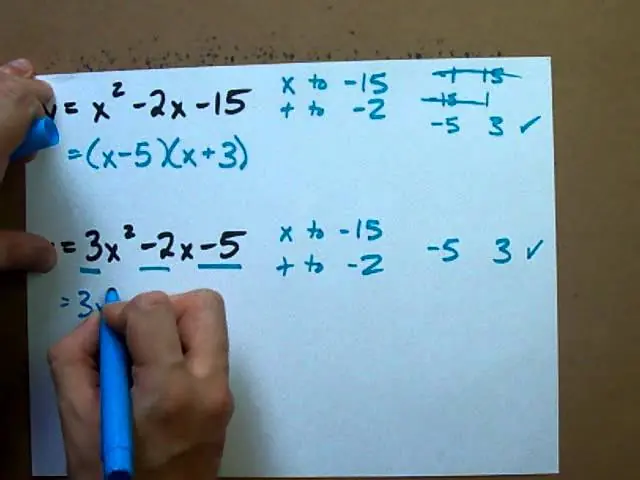 y = x² - 2x - 15 x to -15 -1 15
+ to -2 -15 1
= (x-5)(x+3) -5 3 ✓
= 3x² - 2x - 5 x to -15 -5 3 ✓
+ to -2
= 3x